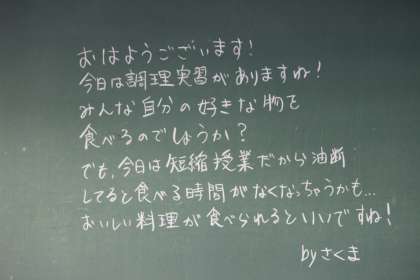 おはようございます!
今日は調理実習がありますね!
みんな自分の好きな物を
食べるのでしょうか?
でも、今日は短縮授業だから油断
してると食べる時間がなくなっちゃうかも...
おいしい料理が食べられるといいですね!
by さくま